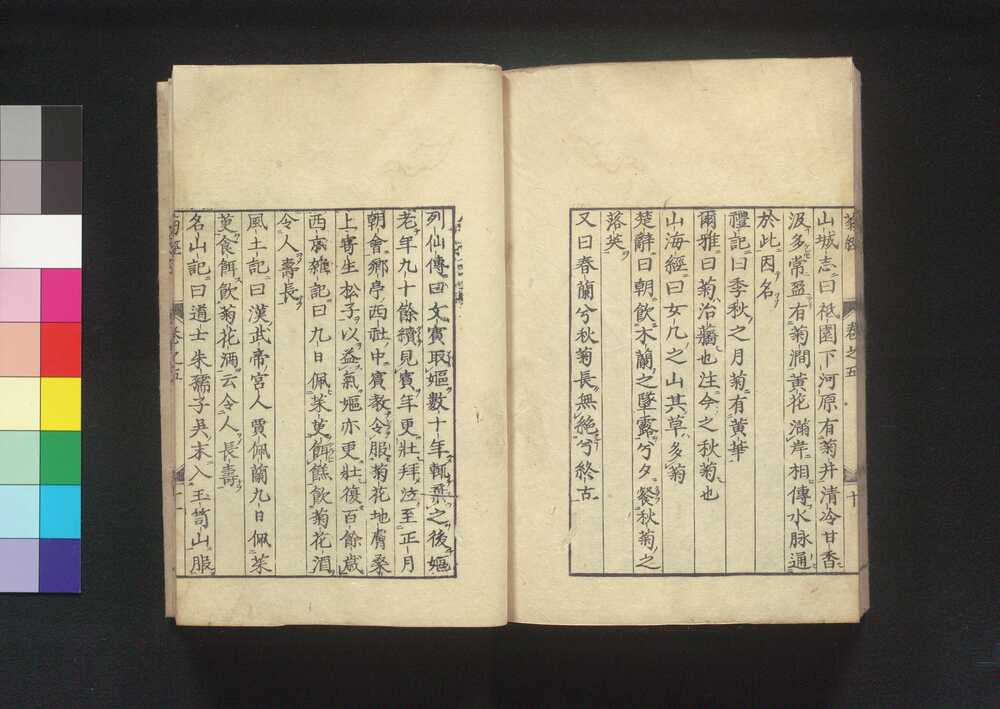 山城志曰祇園下河原有菊井清冷甘香
汲多常盈有菊澗黃花滿岸相傳水脉通
於此因名
禮記曰季秋之月菊有黃華
爾雅曰菊治蘠也注今之秋菊也
山海經曰女几之山其草多菊
楚辭曰朝飲木蘭之墜露兮夕餐秋菊之
落英
又曰春蘭兮秋菊長無絕兮終古
卷之五
十
列仙傳曰文賓取嫗數十年輒棄之後嫗
老年九十餘續見賓年更壯拜泣至正月
朝會鄉亭西社中賓教令服菊花地膚桑
上寄生松子以益氣嫗亦更壯復百餘歲
西京雜記曰九日佩茱萸餌餻飲菊花酒
令人壽長
風土記曰漢武帝宮人賈佩蘭九日佩茱
萸食餌飲菊花酒云令人長壽
名山記曰道士朱孺子吳末入玉笥山服
菊經
卷之五